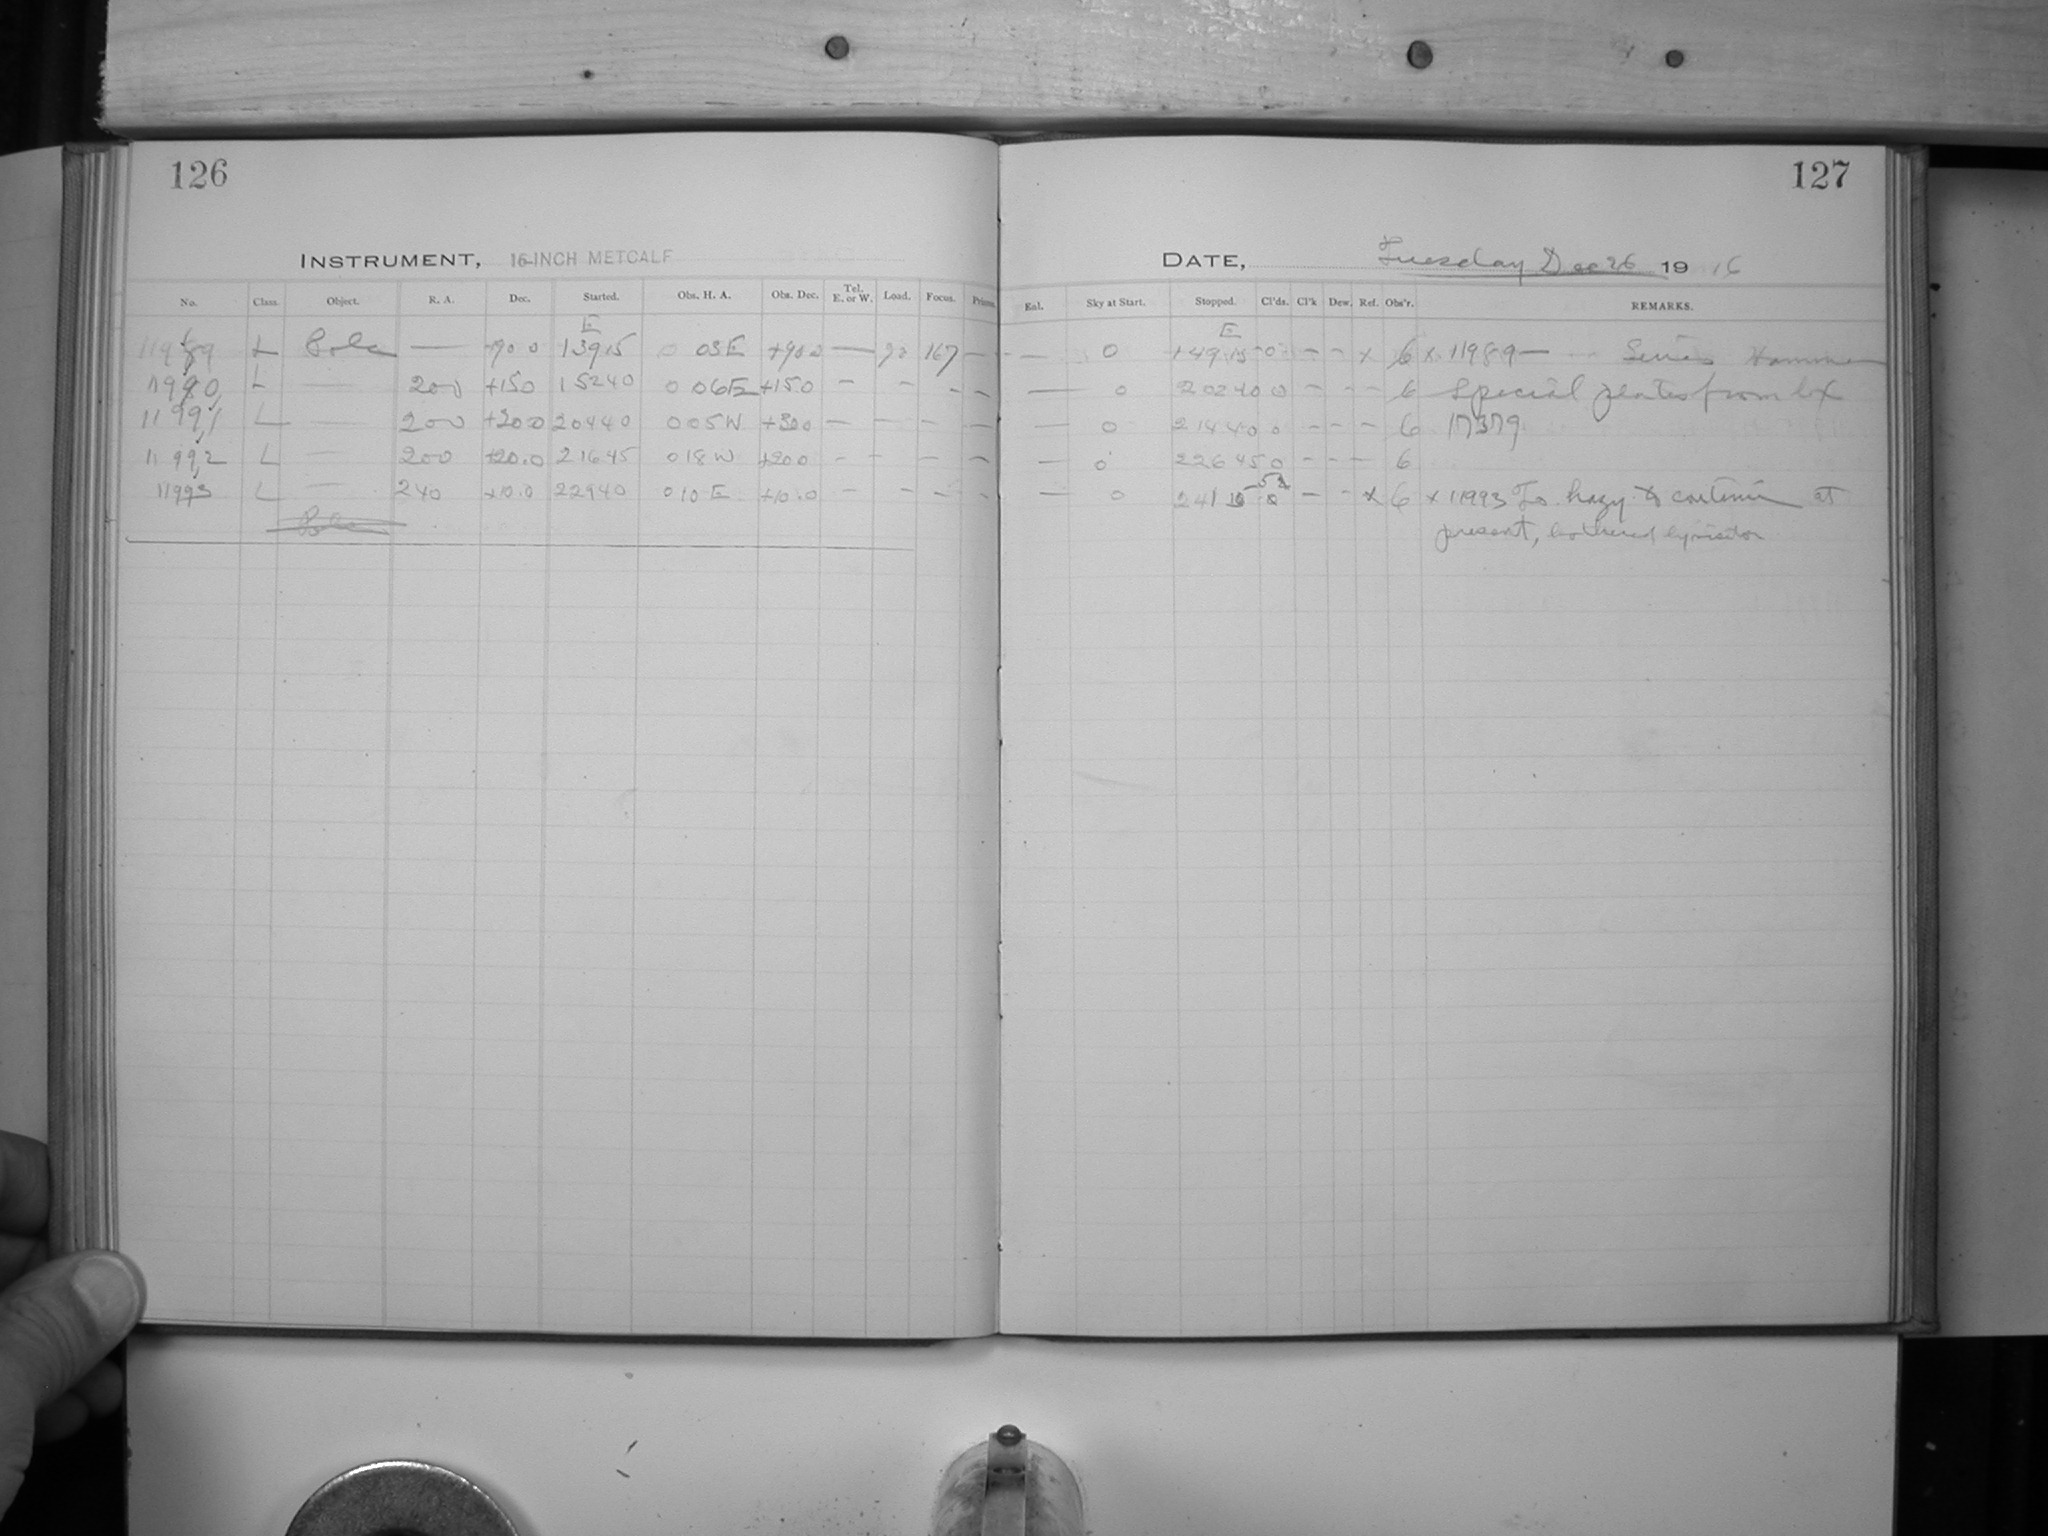 126
127
INSTRUMENT, 16-INCH METCALF
DATE, Tuesday Dec 26 1916
No. Class. Object. R. A. Dec. Started. Obs. H. A. Obs. Dec. Tel. E. or W. Load. Focus. Prisms. Enl. Sky at Start. Stopped. Cl'ds. Cl'k Dew. Ref. Obs'r. REMARKS.
E E
11989 L Pole — +90 0 13915 0 03E +900 — 167 — — 0 14915 0 — — x 6 x 11989 — Series
11990 L — 200 +150 15240 0 06E +150 — — — — — 0 20240 0 — — — 6 Special plates from bx
11991 L — 200 20440 005W +300 — — — — — 0 21440 0 — — — 6 17379
11992 L — 200 +20.0 21645 018W +200 — — — — — 0 22645 0 — — — 6
11993 L — 240 +10.0 22940 010 E +10.0 — — — — — 0 241 — — x 6 x 11993 Too hazy to continue at
Pole
present, bothered by visitor